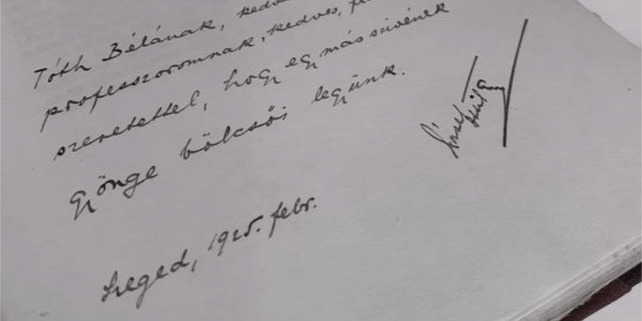 Tóth Bélának, kedv
professzoromnak, kedves,
szeretettel, hogy egymás szivének
gyönge bölcsői legyünk.
Szeged, 1925. febr.